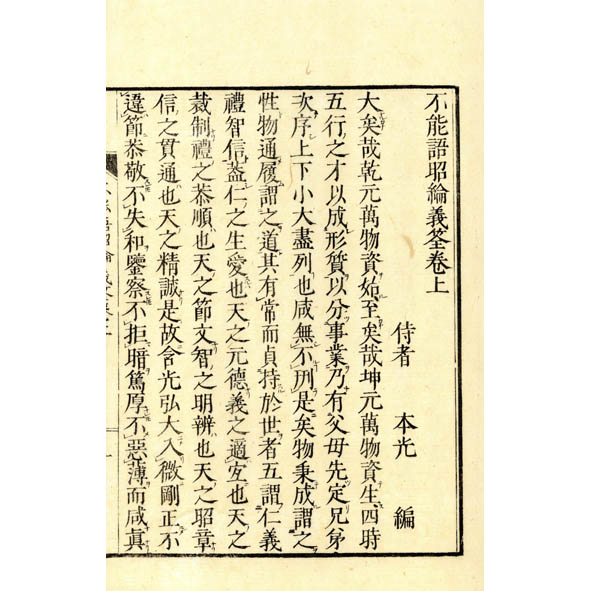 不能語昭綸義筌卷上
侍者 本光 編
大矣哉乾元萬物資始至矣哉坤元萬物資生四時
五行之才以成形質以分事業乃有父母先定兄弟
次序上下小大盡列也咸無不刑是矣物秉成謂之
性物通履謂之道其有常而貞持於世者五謂仁義
禮智信葢仁之生愛也天之元德義之適宜也天之
裁制禮之恭順也天之節文智之明辨也天之昭章
信之貫通也天之精誠是故含光弘大入微剛正不
違節恭敬不失和鑒察不拒暗篤厚不惡薄而咸眞